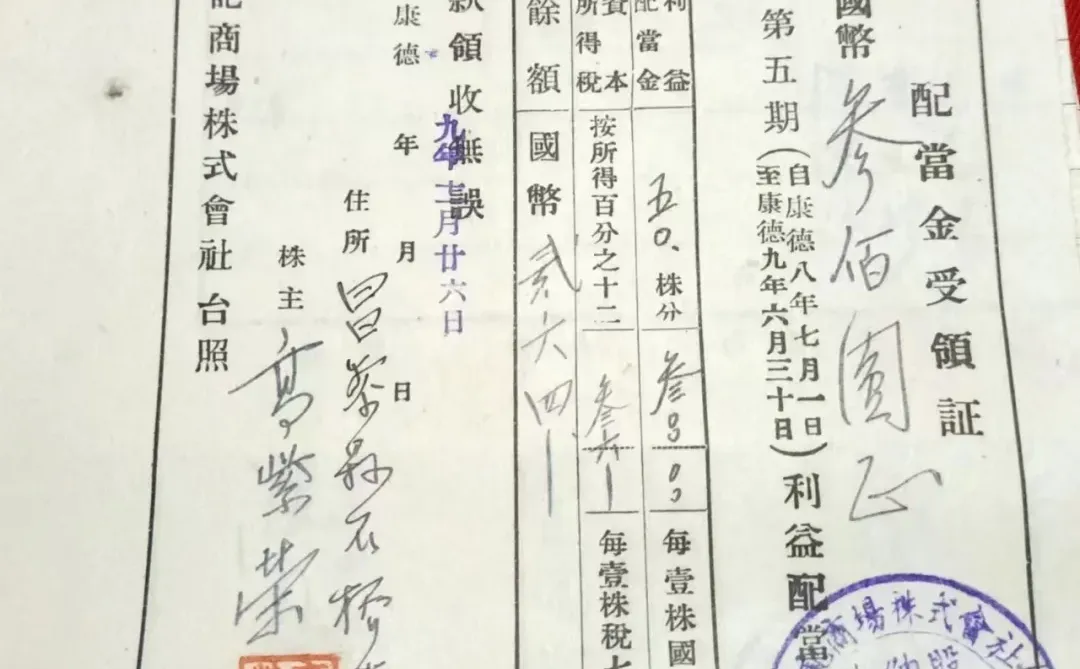 配當金受領証
國幣參佰圓正
第五期(自康德八年七月一日至康德九年六月三十日)利益配當
利益配當金 五〇.株分 叁00 00 每壹株國
資本所得稅 按所得百分之十二 叁六— 每壹株稅
餘額 國幣 貳六四—
款領收無誤
九年十二月廿六日
康德 年 月 日
住所 昌黎縣石橋
株主 高紫荣
記商場株式會社 台照
商場株式會社